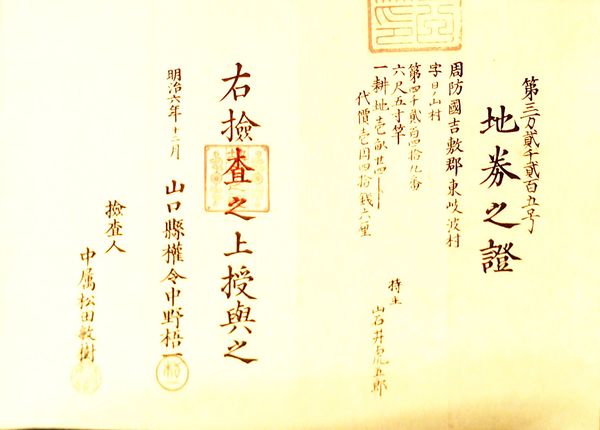 第三万貳千貳百五号
地券之證
周防國吉敷郡東岐波村
字日ノ山村
第四千貳百四拾九番
六尺五寸竿
一耕地壱畝廿四
代價壱円四拾銭六厘
持主
井虎五郎
右撿査之上授與之
明治六年十二月
山口縣權令中野梧一
撿査人
中属松田敏樹